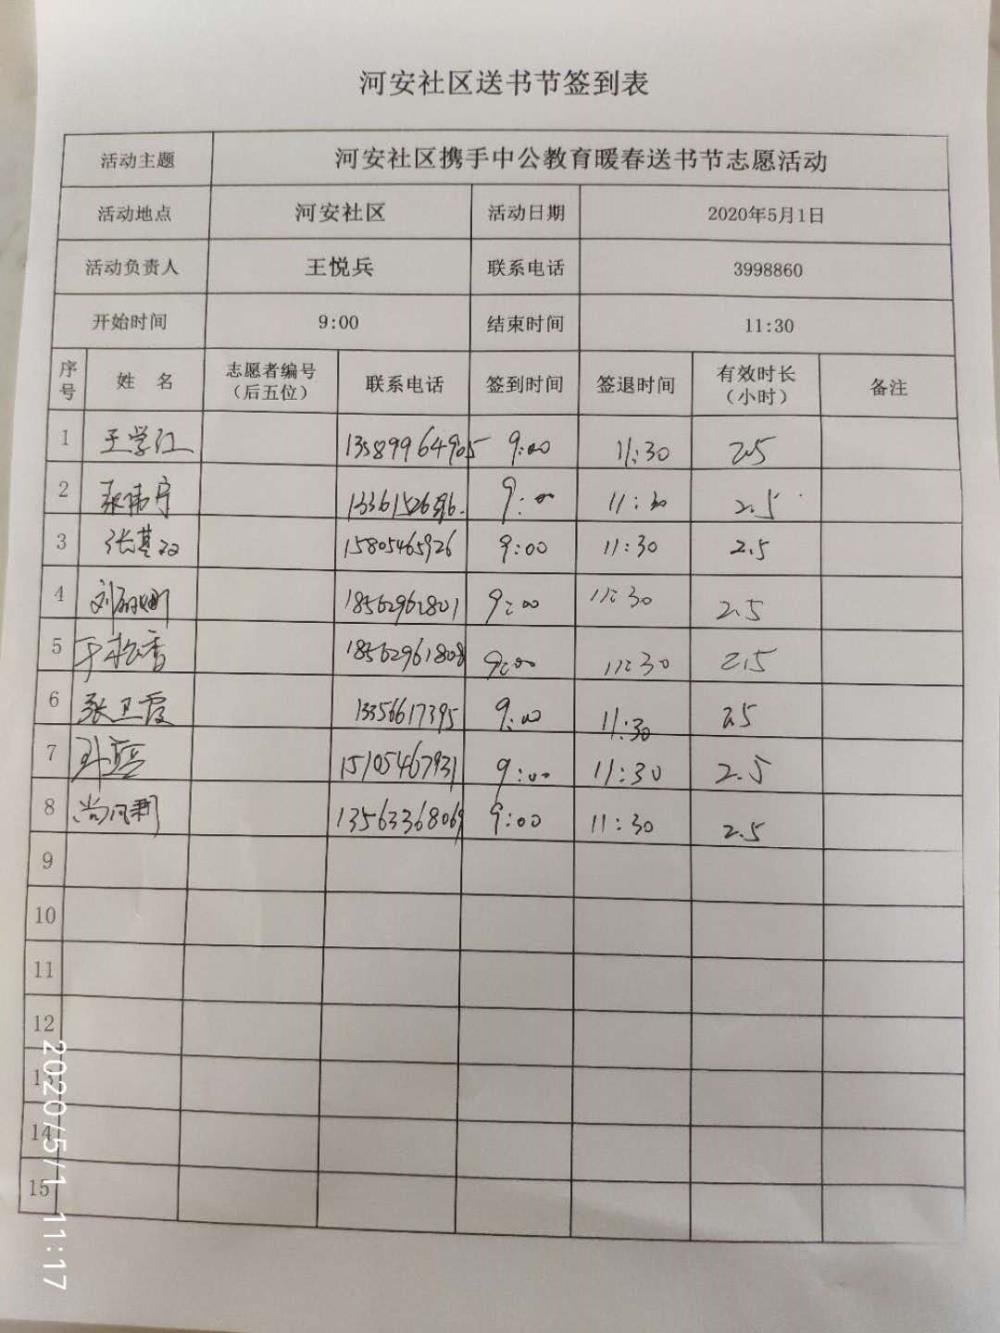 河安社区送书节签到表
活动主题 河安社区携手中公教育暖春送书节志愿活动
活动地点 河安社区 活动日期 2020年5月1日
活动负责人 王悦兵 联系电话 3998860
开始时间 9:00 结束时间 11:30
序号 姓 名 志愿者编号（后五位） 联系电话 签到时间 签退时间 有效时长（小时） 备注
1 王学江 13589964905 9:00 11:30 2.5
2 9:00 11:30 2.5
3 15805465926 9:00 11:30 2.5
4 18562962801 9:00 11:30 2.5
5 于松香 18562961808 9:00 11:30 2.5
6 张卫霞 13356617395 9:00 11:30 2.5
7 15105467931 9:00 11:30 2.5
8 13563368069 9:00 11:30 2.5
9
10
11
12
13
14
15
2020/5/1 11:17